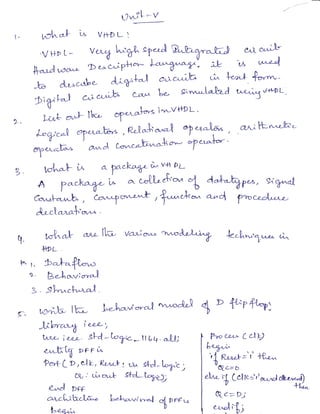 Unit-V
1. what is VHDL?
VHDL - Very high speed Integrated circuit
Hardware Description Language. It is used
to describe digital circuits in text form.
Digital circuits can be simulated using VHDL
2. List out the operators in VHDL.
Logical operators, Relational operators, arithmetic
operators and concatenation operator.
3. what is a package in VHDL
A package is a collection of datatypes, signal
constants, component, function and procedure
declaration.
4. what are the various modeling techniques in
HDL
1. Dataflow
2. Behavioral
3. structural.
5. write the behavioral model of D flipflop?
library ieee;
use ieee std-logic-1164.all;
entity DFF is
Port (D, clk, Reset: in std-logic;
Q: inout std logic);
end DFF
architecture behavioral of DFF is
begin
Process (clk)
begin
if Reset='1' then
Q<=0
else if (clk='1' and clkevent)
then
Q<=D;
endif;